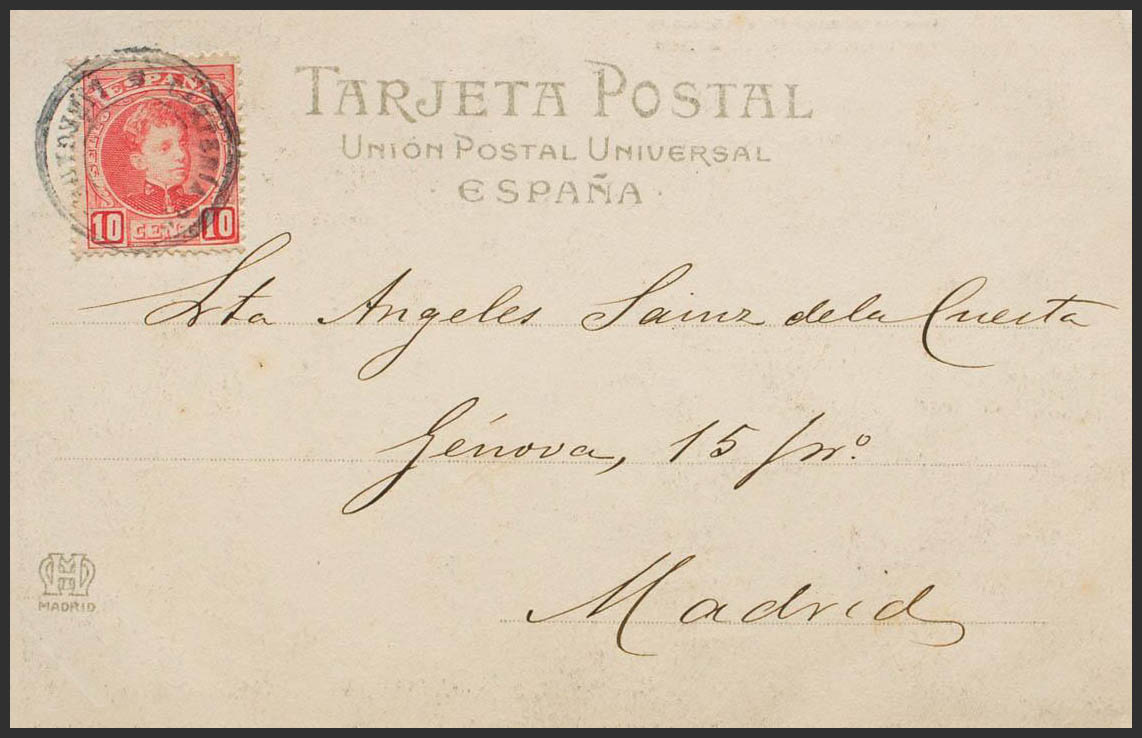 TARJETA POSTAL
UNIÓN POSTAL UNIVERSAL
· ESPAÑA ·
ESPAÑA
10 CENT 10
Srta Angeles Sainz de la Cuesta
Génova, 15 prº.
Madrid
HM
MADRID